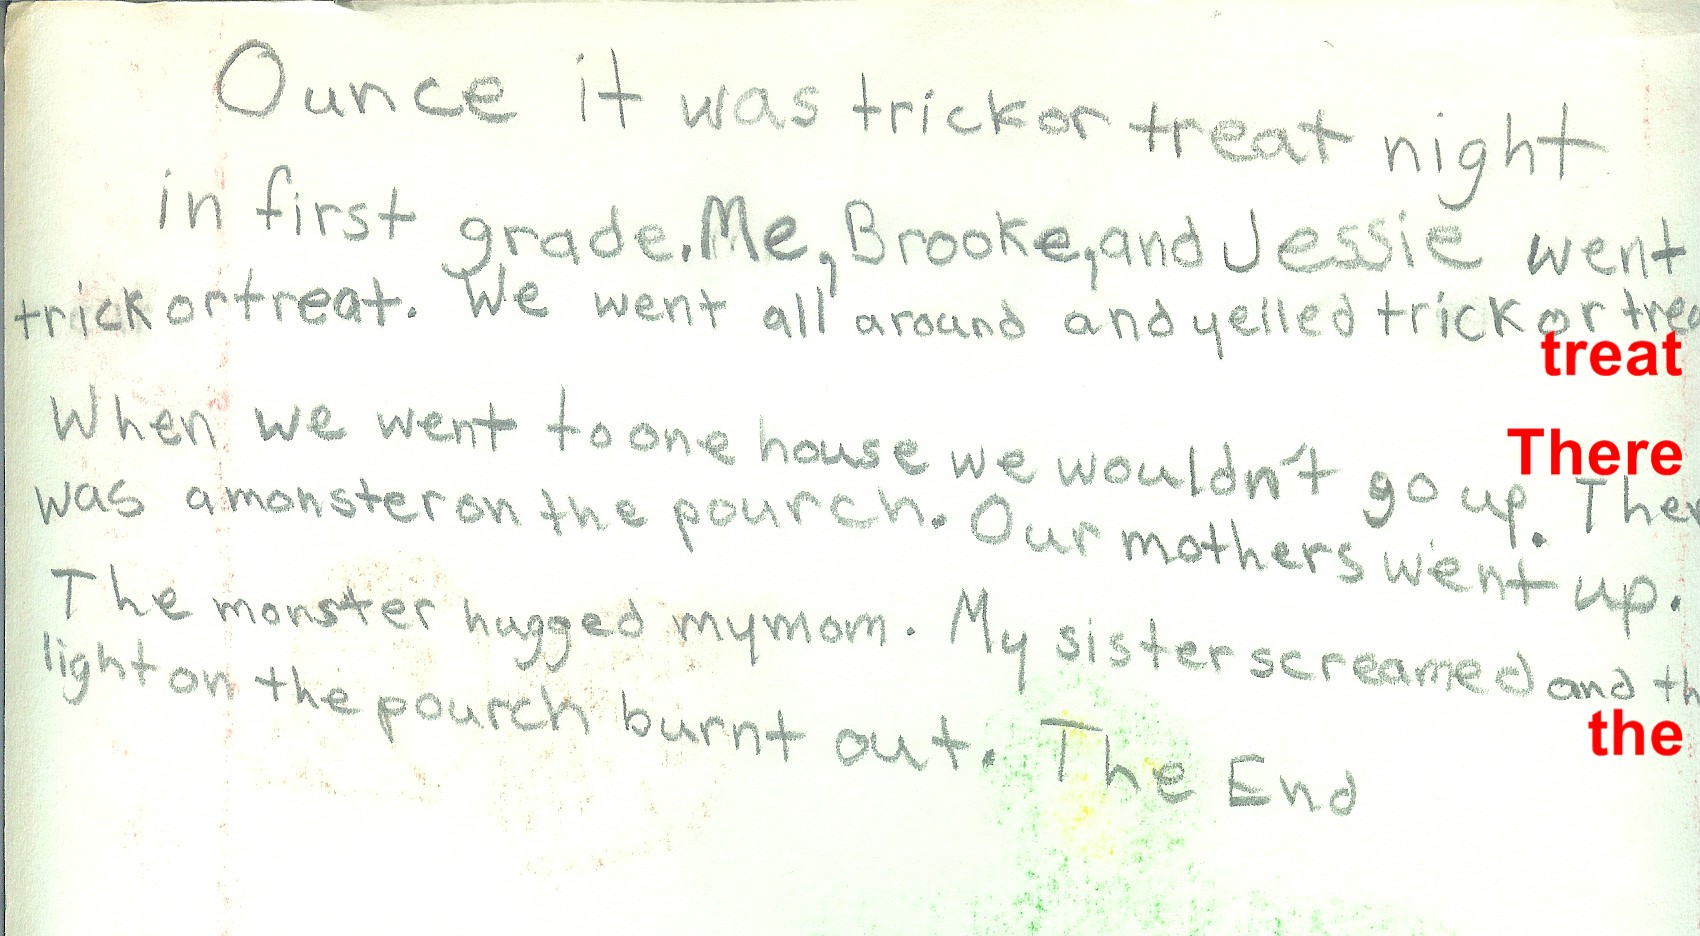 Ounce it was trick or treat night
in first grade. Me, Brooke, and Jessie went
trick or treat. We went all around and yelled trick or trea
treat
When we went to one house we wouldn't go up. Ther
There
was a monster on the pourch. Our mothers went up.
The monster hugged my mom. My sister screamed and th
the
light on the pourch burnt out. The End